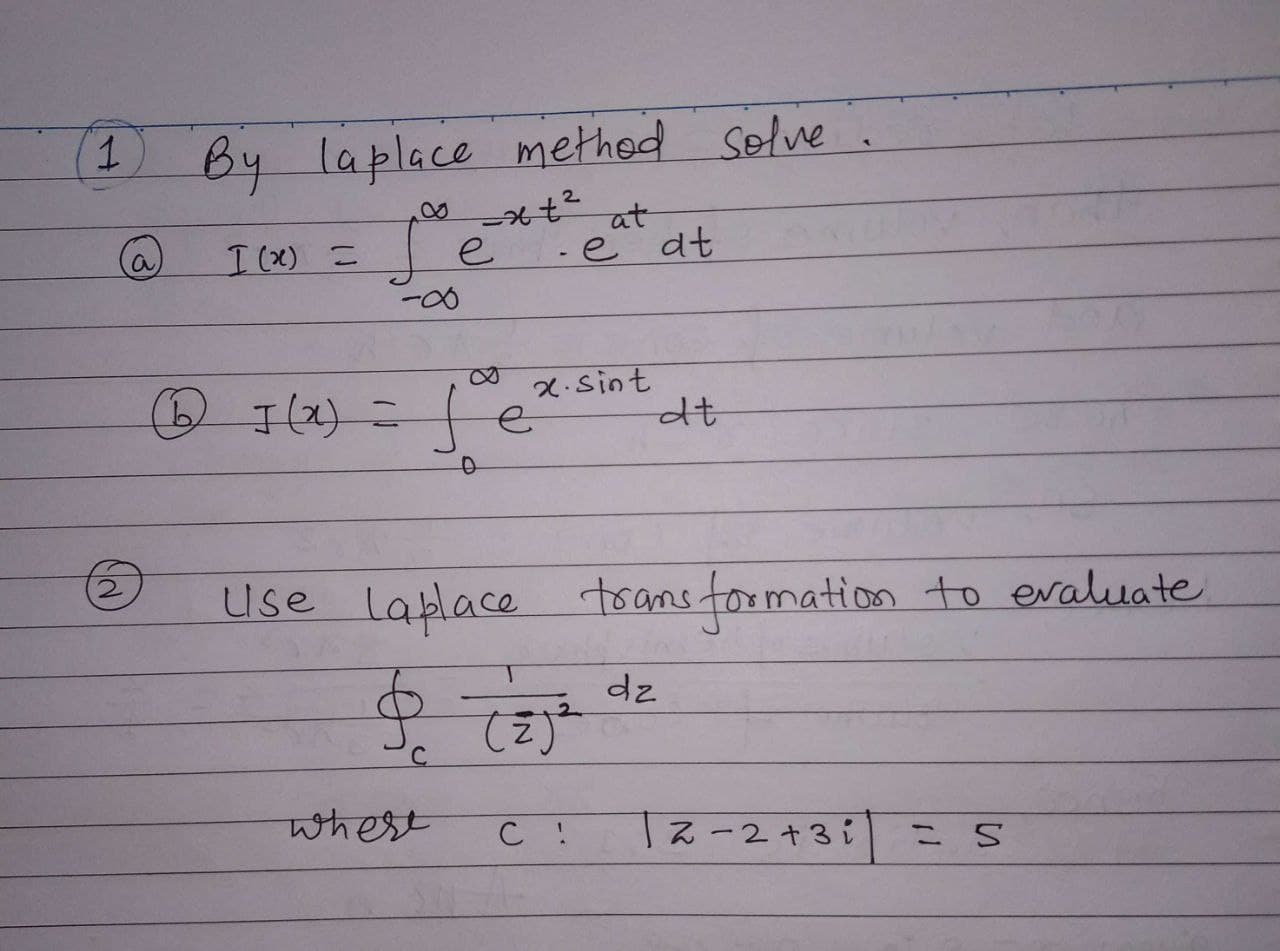 ① By laplace method solve.
ⓐ I(x) = ∫_{-∞}^{∞} e^{-xt²} . e^{at} dt
ⓑ I(x) = ∫_{0}^{∞} e^{x.sint} dt
② Use laplace transformation to evaluate
∮_c 1/(z̄)² dz
where c : |z-2+3i| = 5